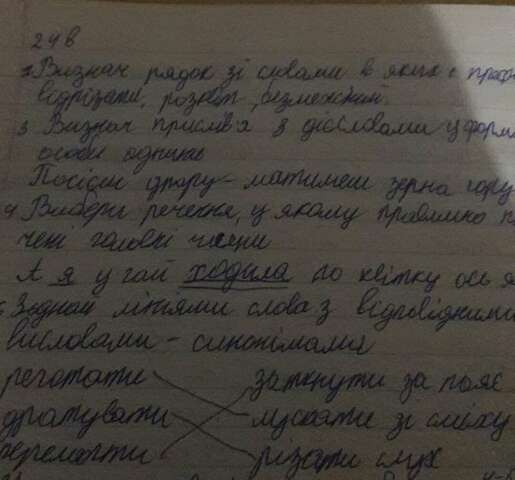 24 в
Визнач рядок зі словами в яких є преф
відрізати, розкіт, безмежний.
3 Визнач прислів'я з дієсловами у форм
особи однини
Посієш впору - матимеш зерна гору
4 Вибери речення, у якому правильно п
чені головні члени
А я у гай ходила по квітку ось я
З'єднай лініями слова з відповідними
висловами - синонімами
реготати заткнути за пояс
дратувати луснати зі сміху
перемогти різати слух